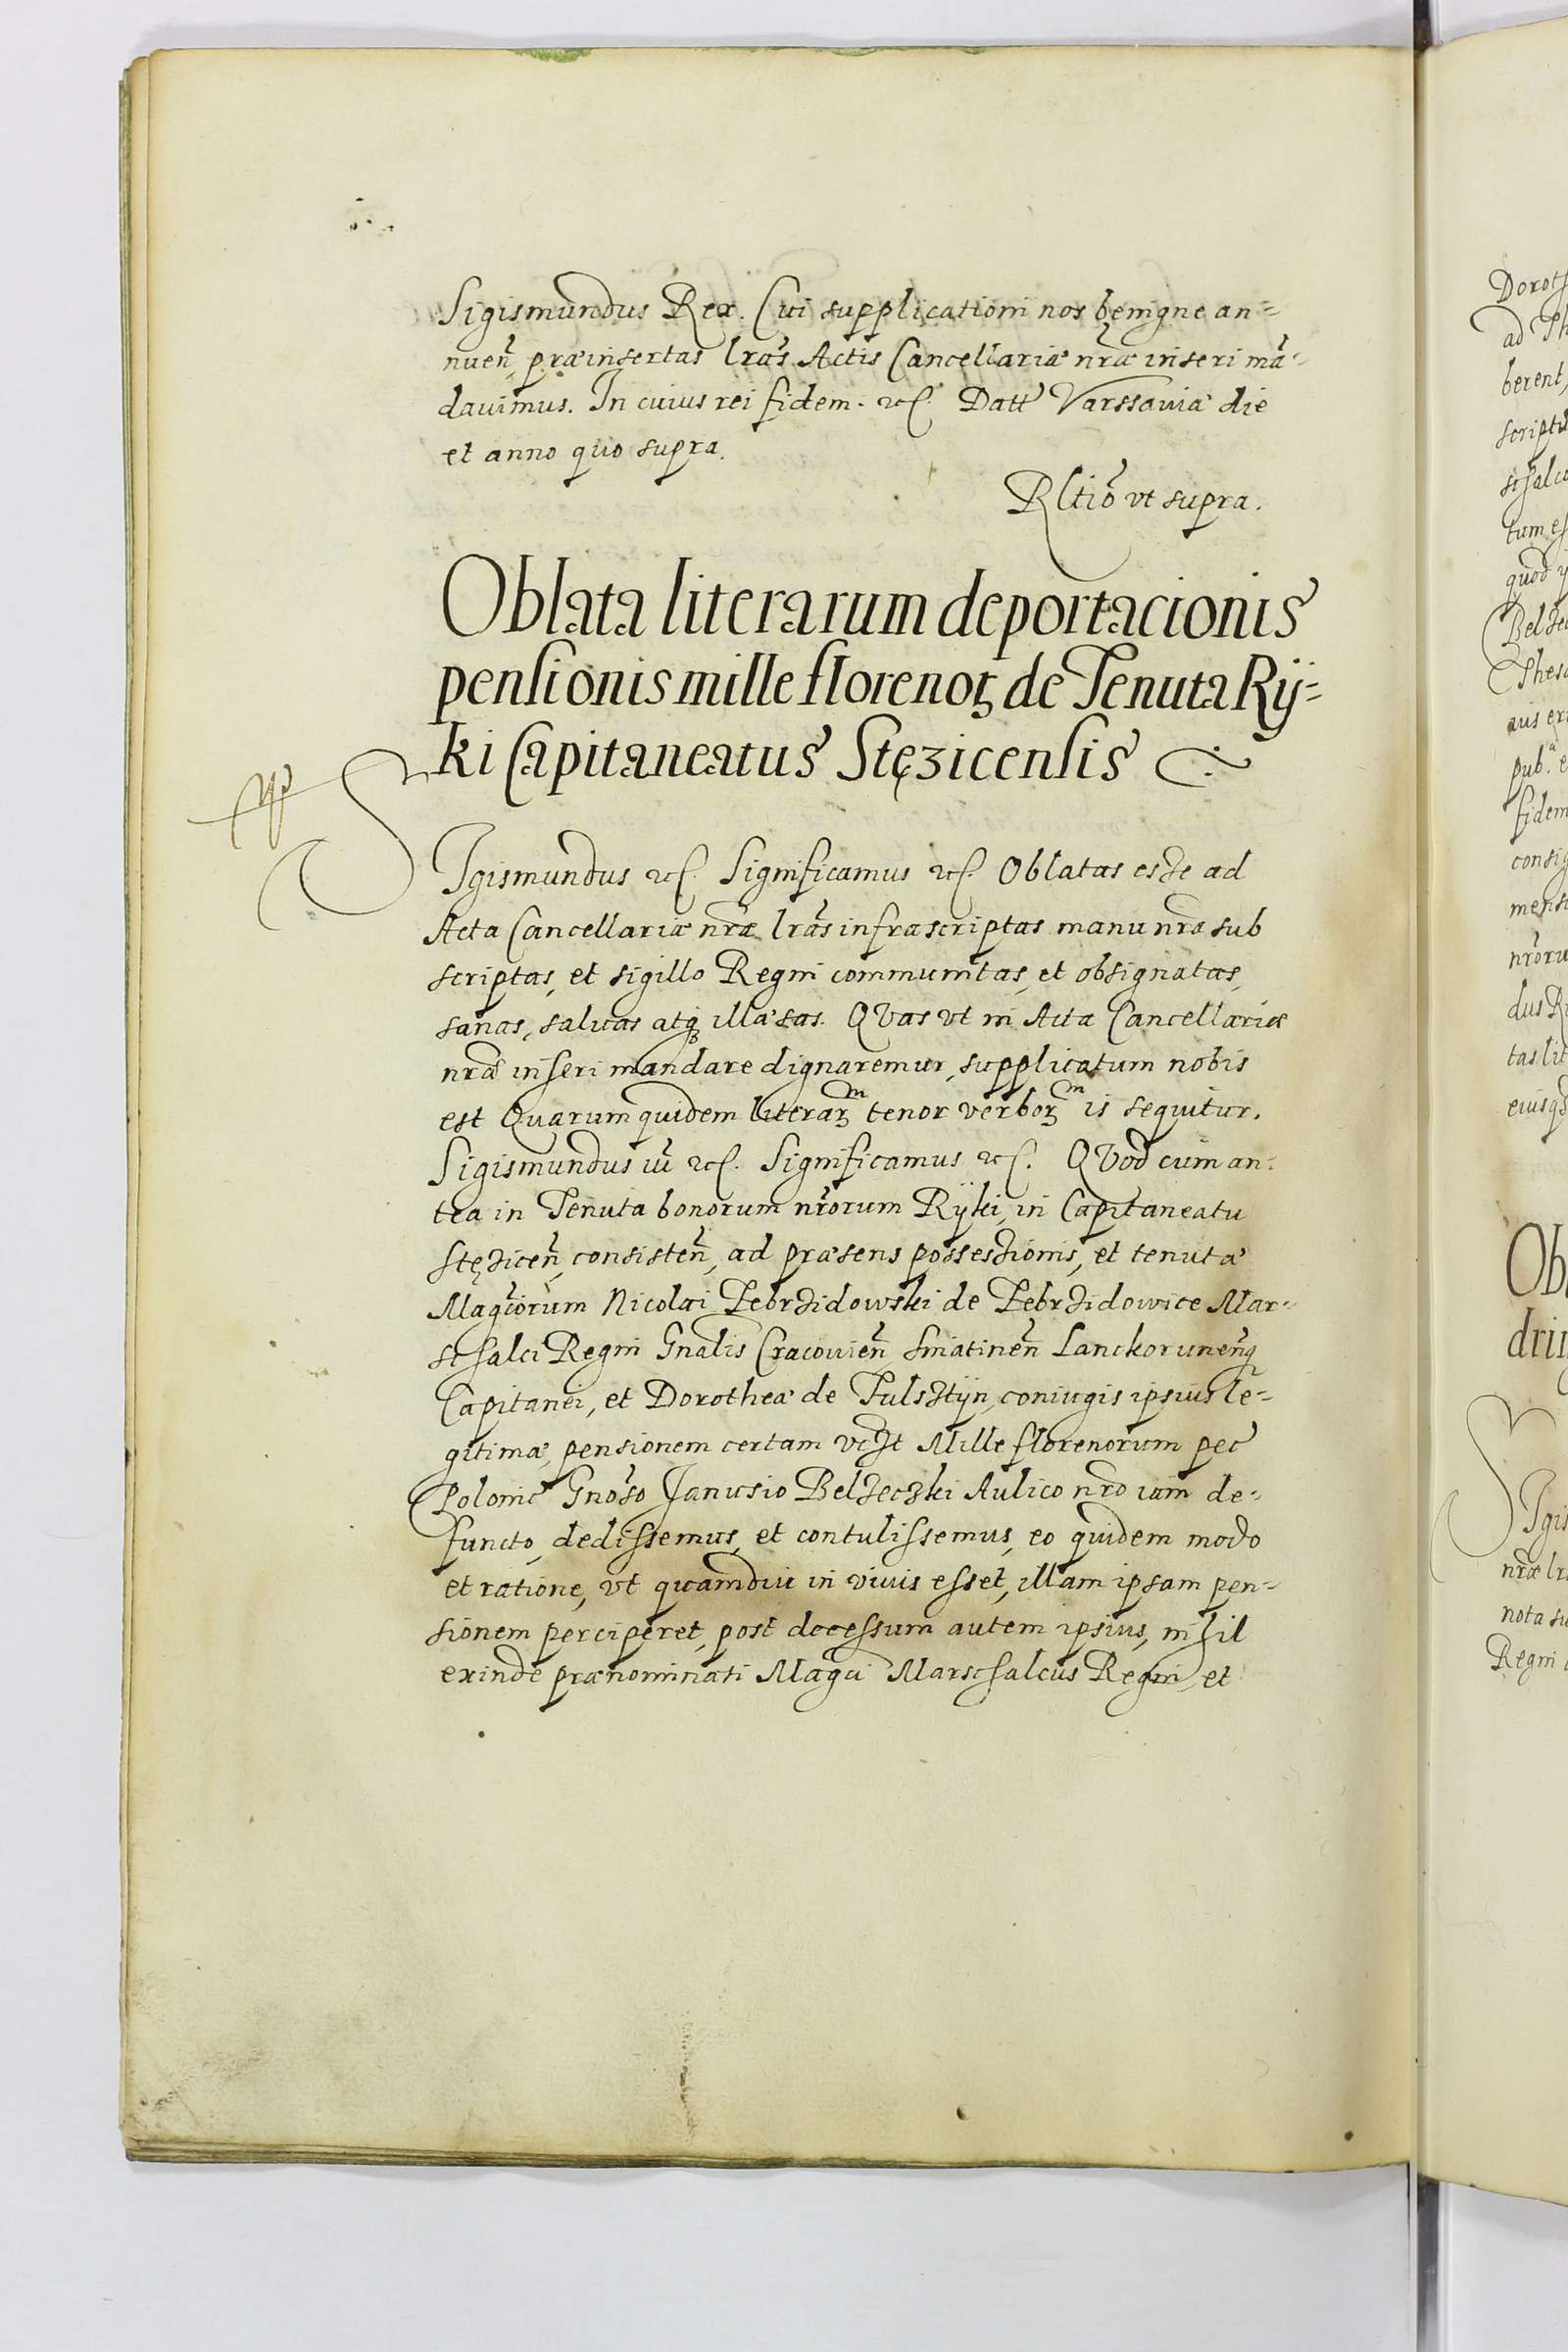 Sigismundus Rex. Cui supplicationi nos benigne an=
nueñ, præinsertas lrãs Actis Cancellariæ nrãe inseri mã=
dauimus. In cuius rei fidem. etc. Datt Varssauiæ die
et anno quo supra.
Rltiõ vt supra.
Oblata literarum deportacionis
pensionis mille florenoꝝ de Tenuta Rÿ=
ki Capitaneatus Stęzicensis
SIgismundus etc. Significamus etc. Oblatas esse ad
Acta Cancellariæ nrãe lrãs infrascriptas manu nrã sub
scriptas, et sigillo Regni communitas, et obsignatas,
sanas, saluas atqꝫ illæsas. QVas vt in Acta Cancellariæ
nrãe inseri mandare dignaremur, supplicatum nobis
est Quarum quidem literaꝝ tenor verboꝝ is sequitur.
Sigismundus iii etc. Significamus etc. QVod cum an=
tea in Tenuta bonorum nrõrum Rÿki, in Capitaneatu
Stęziceñ, consisteñ, ad præsens possessionis, et tenutæ
Magcorum Nicolai Zebrzidowski de Zebrzidowice Mar=
schalci Regni Gnalis Cracouieñ Sniatineñ Lanckoruneñqꝫ
Capitanei, et Dorotheæ de Fulsztÿn, coniugis ipsius le=
gitimæ, pensionem certam vczt Mille florenorum pec
Polonic Gnoso Janusio Belzeczki Aulico nrõ iam de=
functo, dedissemus, et contulissemus, eo quidem modo
et ratione, vt quamdiu in viuis esset, illam ipsam pen=
sionem perciperet, post decessum autem ipsius, nihil
exinde prænominati Magci Marschalcus Regni, et
Dorot
ad Th
berent,
scriptu
schalco
tum es
quod
Belze
Thes
uis
pub.a e
fidem
consig
mens
nrõru
dus R
tas lit
eius
Ob
dri
Igis
nrãe lr
nota su
Regni